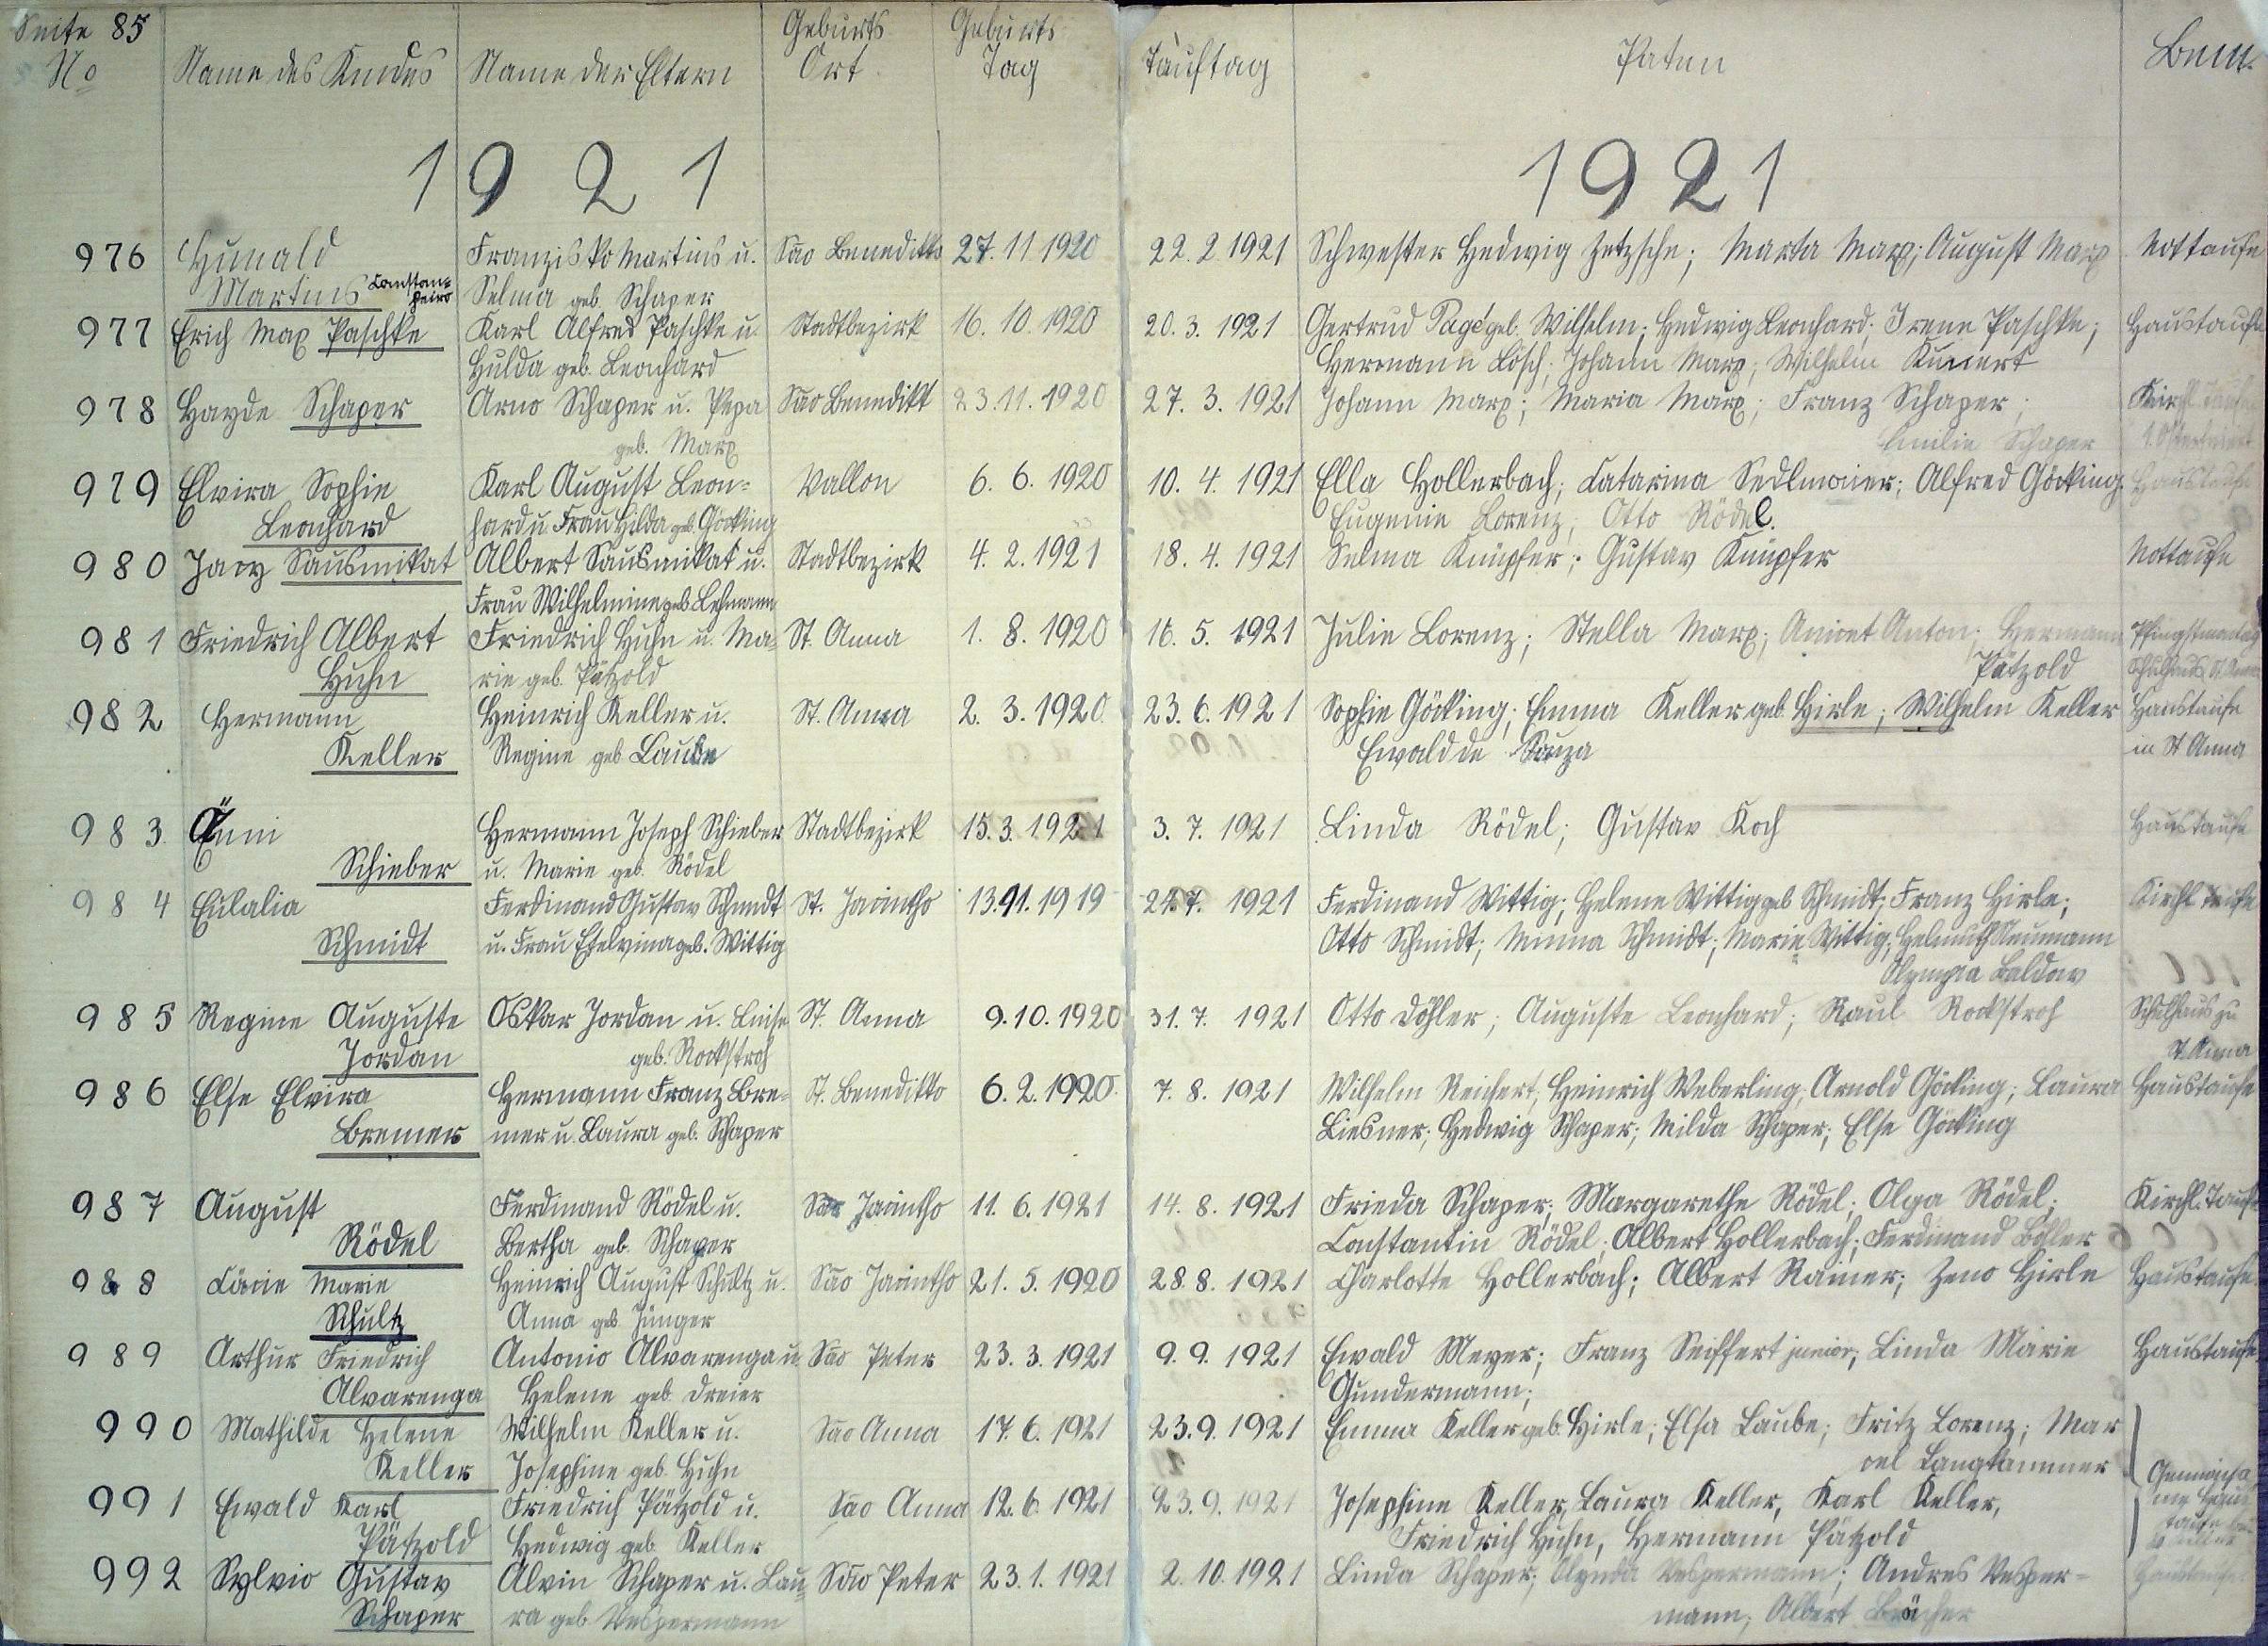 Seite 85
No Name des Kindes Name der Eltern Geburts Ort Geburts Tag Tauftag Paten Bem.
1921 1921
976 Hunald Franzisko Martins u. São Benedikto 27.11 1920 22.2.1921 Schwester Hedwig Zetzsche; Marta Marx; August Marx Nottaufe
Martins Selma geb. Schaper
977 Erich Max Paschke Karl Alfred Paschke u. Stadtbezirk 16. 10. 1920 20. 3. 1921 Gertrud Pagé geb. Wilhelm; Hedwig Leonhard; Irene Paschke; Haustaufe
Hulda geb. Leonhard Hermann Lösch; Johann Marx; Wilhelm Kunert
978 Hayde Schaper Arno Schaper u. Pepa São Benedikt 23.11.1920 27. 3. 1921 Johann Marx; Maria Marx; Franz Schaper; Kirchl. Taufe
geb. Marx Emilie Schaper
979 Elvira Sophie Karl August Leon= Vallon 6. 6. 1920 10. 4. 1921 Ella Hollerbach; Catarina Sedlmaier; Alfred Göcking Haustaufe
Leonhard hard u. Frau Hilda geb. Göcking Eugenie Lorenz; Otto Rödel.
980 Jacy Sausmikat Albert Sausmikat u. Stadtbezirk 4. 2. 1921 18. 4. 1921 Selma Knüpfer; Gustav Knüpfer Nottaufe
Frau Wilhelmine geb. Lehmann
981 Friedrich Albert Friedrich Huhn u. Ma= St. Anna 1. 8. 1920 16. 5. 1921 Julie Lorenz; Stella Marx; Anton; Hermann Pfingstmontag
Huhn rie geb. Pätzold Pätzold Schulhaus St. Anna
982 Hermann Heinrich Keller u. St. Anna 2. 3. 1920 23. 6. 1921 Sophie Göcking; Emma Keller geb. Hirle; Wilhelm Keller Haustaufe
Keller Regine geb Laube Ewald de Souza in St Anna
983 Änni Hermann Joseph Schieber Stadtbezirk 15. 3. 1921 3. 7. 1921 Linda Rödel; Gustav Koch Haustaufe
Schieber u. Marie geb. Rödel
984 Eulalia Ferdinand Gustav Schmidt St. Jacintho 1919 1921 Ferdinand Wittig; Helene Wittig geb Schmidt; Franz Hirle; Kirchl. Taufe
Schmidt u. Frau Etelvina geb. Wittig Otto Schmidt; Minna Schmidt; Marie Wittig; Helmuth Neumann
Olympia Baldow
985 Regine Auguste Oskar Jordan u. Luise St. Anna 9. 10. 1920 31. 7. 1921 Otto Döhler; Auguste Leonhard; Raul Rockstroh Schulhaus zu
Jordan geb. Rockstroh St. Anna
986 Else Elvira Hermann Franz Bre= St. Benedikto 6. 2. 1920 7. 8. 1921 Wilhelm Reichert; Heinrich Weberling; Arnold Göcking; Laura Haustaufe
Bremer mer u. Laura geb. Schaper Liesner; Hedwig Schaper; Milda Schaper; Else Göcking
987 August Ferdinand Rödel u. São Jacintho 11. 6. 1921 14. 8. 1921 Frieda Schaper; Margarethe Rödel; Olga Rödel; Kirchl. Taufe
Rödel Bertha geb. Schaper Constantin Rödel; Albert Hollerbach; Ferdinand Böhler
988 Marie Heinrich August Schultz u. São Jacintho 21. 5. 1920 28. 8. 1921 Charlotte Hollerbach; Albert Rainer; Zeno Hirle Haustaufe
Schultz Anna geb. Jünger
989 Arthur Friedrich Antonio Alvarenga u. São Peter 23. 3. 1921 9. 9. 1921 Ewald Meyer; Franz Seiffert junior; Linda Marie Haustaufe
Alvarenga Helene geb. Dreier Gundermann;
990 Mathilde Helene Wilhelm Keller u. São Anna 17. 6. 1921 23. 9. 1921 Emma Keller geb. Hirle; Elsa Laube; Fritz Lorenz; Mar
Keller Josephine geb. Huhn cel Langhammer
991 Ewald Karl Friedrich Pätzold u. São Anna 12. 6. 1921 23. 9. 1921 Josephine Keller, Laura Keller, Karl Keller,
Pätzold Hedwig geb. Keller Friedrich Huhn, Hermann Pätzold
992 Sylvio Gustav Alvin Schaper u. Lau= São Peter 23. 1. 1921 2. 10. 1921 Linda Schaper; Vespermann; Andres Vesper= Haustaufe
Schaper ra geb. Vespermann mann; Albert